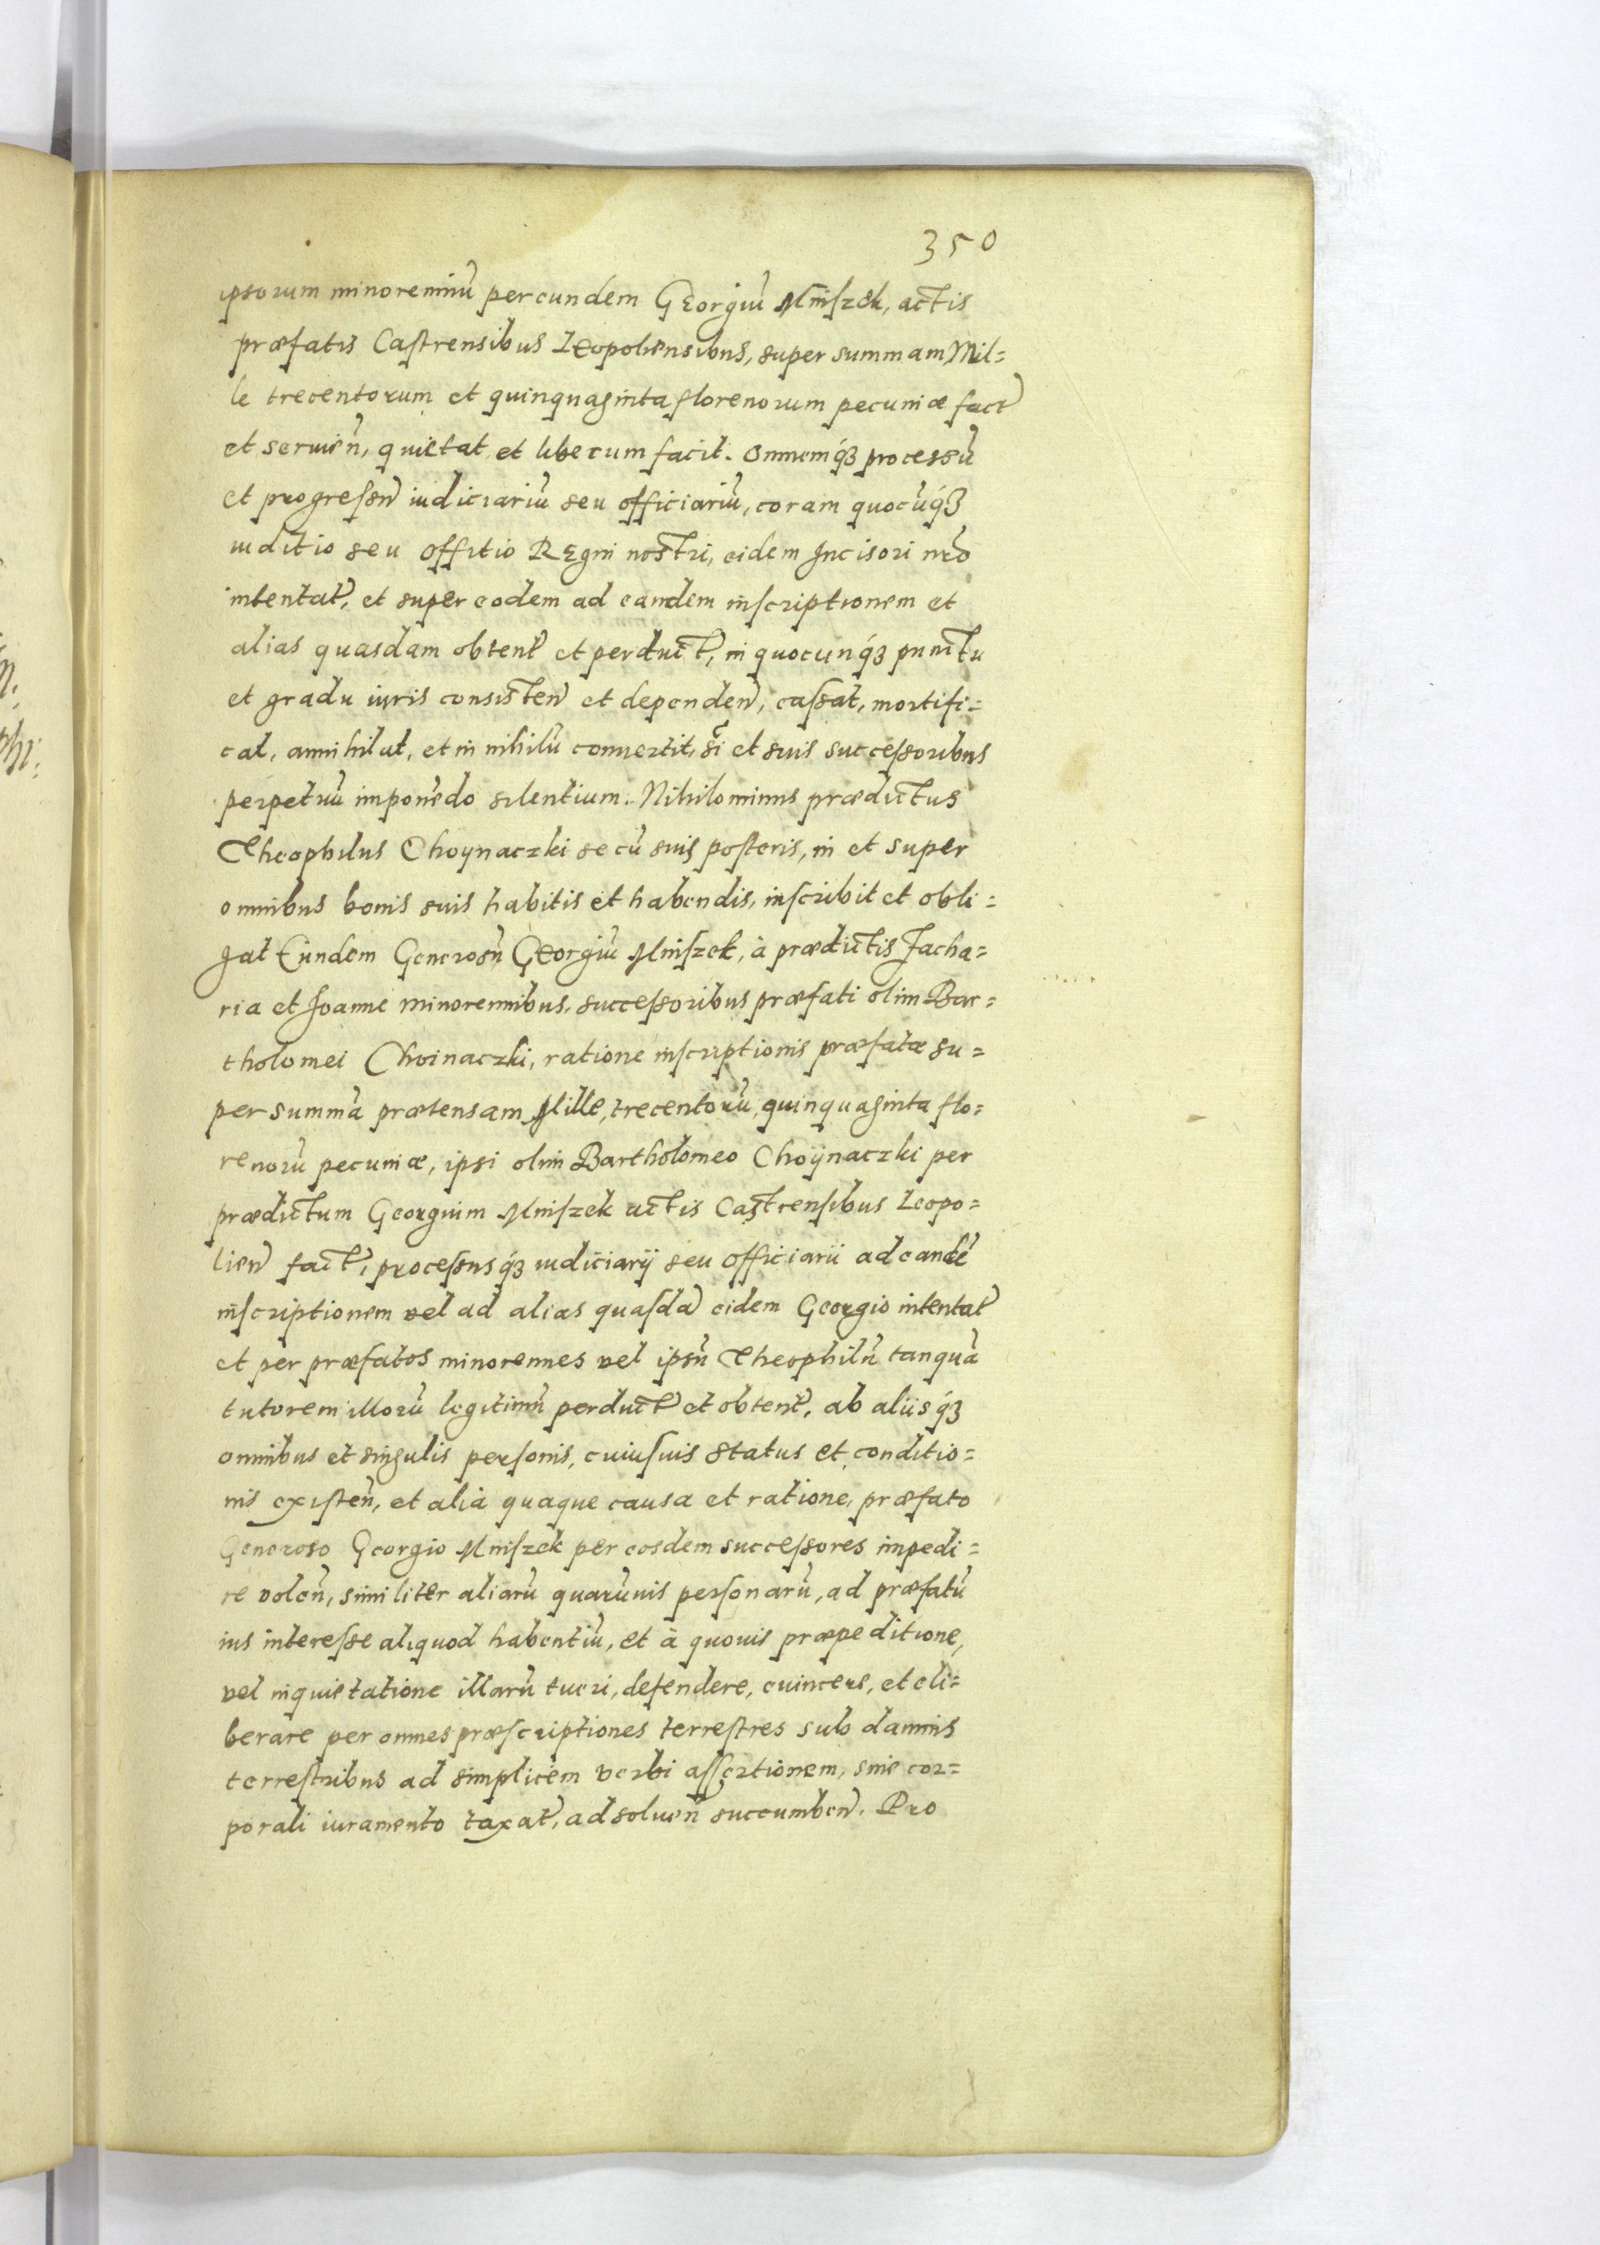 350
ipsorum minorenniũ per eundem Georgiũ Mniſzek, actis
præfatis Caſtrensibus Leopoliensibus, super summam Mil=
le trecentorum et quinquaginta florenorum pecuniæ fact̃
et seruien̄, quietat et liberum facit. Omnemq́ꝫ processũ
et progreſsũ iudiciariũ seu officiariũ, coram quocũq́ꝫ
iuditio seu offitio Regni nostri, eidem Incisori nr̃o
intentat̃, et super eodem ad eandem inſcriptionem et
alias quasdam obtent̃ et perduct̃, in quocunq́ꝫ punctu
et gradu iuris consisten̄ et dependen̄, caſsat, mortifi=
cat, annihilat, et in nihilũ conuertit, s̃i et suis succeſsoribus
perpetuũ imponẽdo silentium. Nihilominus prædictus
Theophilus Choynaczki se cũ suis poſteris, in et super
omnibus bonis suis habitis et habendis, inſcribit et obli=
gat Eundem Generosũ Georgiũ Mniſzek, à prædictis Zacha=
ria et Joanne minorennibus, succeſsoribus præfati olim Bar=
tholomei Choinaczki, ratione inſcriptionis præfatæ su=
per summã prætensam Mille, trecentorũ, quinquaginta flo=
renorũ pecuniæ, ipsi olim Bartholomeo Choÿnaczki per
prædictum Georgium Mniſzek actis Caſtrenſibus Leopo=
lien̄ fact̃, proceſsusq́ꝫ iudiciarij seu officiarii ad eandẽ
inſcriptionem vel ad alias quaſdã eidem Georgio intentat̃
et per præfatos minorennes vel ipsũ Theophilũ tanquã
tutorem illorũ legitimũ perduct̃ et obtent̃, ab aliisq́ꝫ
omnibus et singulis perſonis, cuiuſuis status et conditio=
nis exiſten̄, et alia quaque causa et ratione, præfato
Generoso Georgio Mniſzek per eosdem succeſsores impedi=
re volen̄, similiter aliarũ quarũuis perſonarũ, ad præfatũ
ius intereſse aliquod habentiũ, et à quouis præpeditione,
vel inquietatione illarũ tueri, defendere, euincere, et eli=
berare per omnes præſcriptiones terreſtres sub damnis
terreſtribus ad simplicem verbi aſſertionem, sine cor=
porali iuramento taxat̃, ad soluen̄ succumben̄. Pro